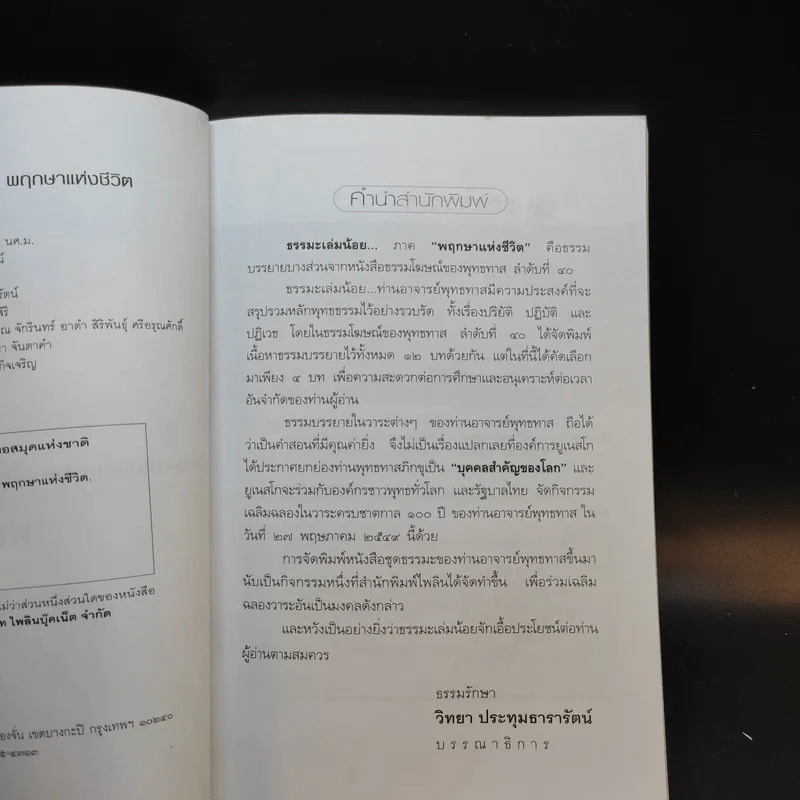 พฤกษาแห่งชีวิต
นศ.ม.
รัตน์
สิริ
ณ จักรินทร์ อาดำ สิริพันธุ์ ศรีอรุณศักดิ์
า จันตาคำ
กิจเจริญ
อสมุดแห่งชาติ
พฤกษาแห่งชีวิต.
ไม่ว่าส่วนหนึ่งส่วนใดของหนังสือ
ท ไพลินบุ๊คเน็ต จำกัด
องจั่น เขตบางกะปิ กรุงเทพฯ ๑๐๒๔๐
๕-๔๓๑๓
คำนำสำนักพิมพ์
ธรรมะเล่มน้อย... ภาค "พฤกษาแห่งชีวิต" คือธรรม
บรรยายบางส่วนจากหนังสือธรรมโฆษณ์ของพุทธทาส ลำดับที่ ๔๐
ธรรมะเล่มน้อย...ท่านอาจารย์พุทธทาสมีความประสงค์ที่จะ
สรุปรวมหลักพุทธธรรมไว้อย่างรวบรัด ทั้งเรื่องปริยัติ ปฏิบัติ และ
ปฏิเวธ โดยในธรรมโฆษณ์ของพุทธทาส ลำดับที่ ๔๐ ได้จัดพิมพ์
เนื้อหาธรรมบรรยายไว้ทั้งหมด ๑๒ บทด้วยกัน แต่ในที่นี้ได้คัดเลือก
มาเพียง ๔ บท เพื่อความสะดวกต่อการศึกษาและอนุเคราะห์ต่อเวลา
อันจำกัดของท่านผู้อ่าน
ธรรมบรรยายในวาระต่างๆ ของท่านอาจารย์พุทธทาส ถือได้
ว่าเป็นคำสอนที่มีคุณค่ายิ่ง จึงไม่เป็นเรื่องแปลกเลยที่องค์การยูเนสโก
ได้ประกาศยกย่องท่านพุทธทาสภิกขุเป็น "บุคคลสำคัญของโลก" และ
ยูเนสโกจะร่วมกับองค์กรชาวพุทธทั่วโลก และรัฐบาลไทย จัดกิจกรรม
เฉลิมฉลองในวาระครบชาตกาล ๑๐๐ ปี ของท่านอาจารย์พุทธทาส ใน
วันที่ ๒๗ พฤษภาคม ๒๕๔๙ นี้ด้วย
การจัดพิมพ์หนังสือชุดธรรมะของท่านอาจารย์พุทธทาสขึ้นมา
นับเป็นกิจกรรมหนึ่งที่สำนักพิมพ์ไพลินได้จัดทำขึ้น เพื่อร่วมเฉลิม
ฉลองวาระอันเป็นมงคลดังกล่าว
และหวังเป็นอย่างยิ่งว่าธรรมะเล่มน้อยจักเอื้อประโยชน์ต่อท่าน
ผู้อ่านตามสมควร
ธรรมรักษา
วิทยา ประทุมธารารัตน์
บรรณาธิการ